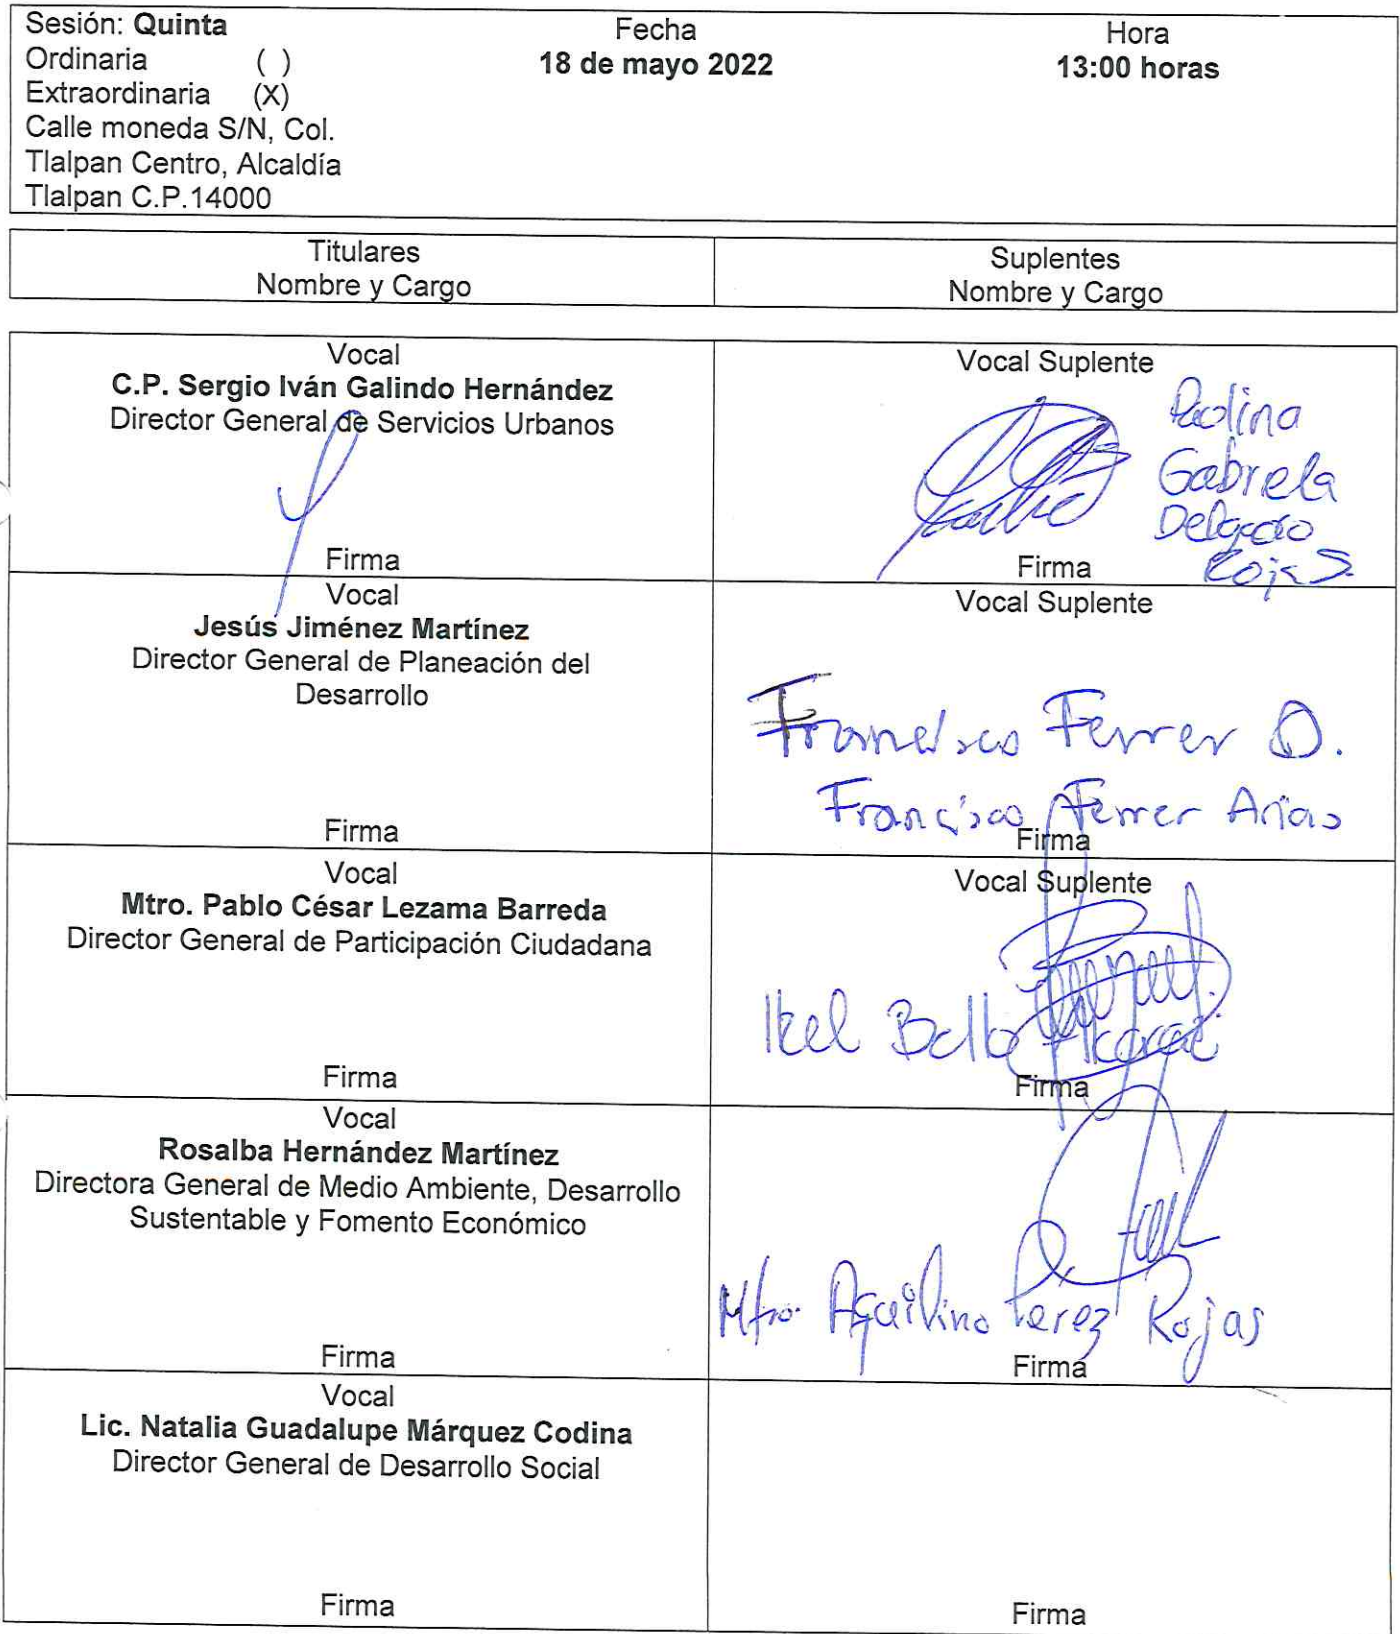 Sesión: Quinta
Ordinaria ( )
Extraordinaria (X)
Calle moneda S/N, Col.
Tlalpan Centro, Alcaldía
Tlalpan C.P.14000
Fecha
18 de mayo 2022
Hora
13:00 horas
Titulares
Nombre y Cargo
Suplentes
Nombre y Cargo
Vocal
C.P. Sergio Iván Galindo Hernández
Director General de Servicios Urbanos
Firma
Vocal Suplente
Paolina
Gabriela
Delgado
Rojas.
Firma
Vocal
Jesús Jiménez Martínez
Director General de Planeación del
Desarrollo
Firma
Vocal Suplente
Francisco Ferrer O.
Francisco Ferrer Arias
Firma
Vocal
Mtro. Pablo César Lezama Barreda
Director General de Participación Ciudadana
Firma
Vocal Suplente
Firma
Vocal
Rosalba Hernández Martínez
Directora General de Medio Ambiente, Desarrollo
Sustentable y Fomento Económico
Firma
Mtro. Aquilino Pérez Rojas
Firma
Vocal
Lic. Natalia Guadalupe Márquez Codina
Director General de Desarrollo Social
Firma
Firma